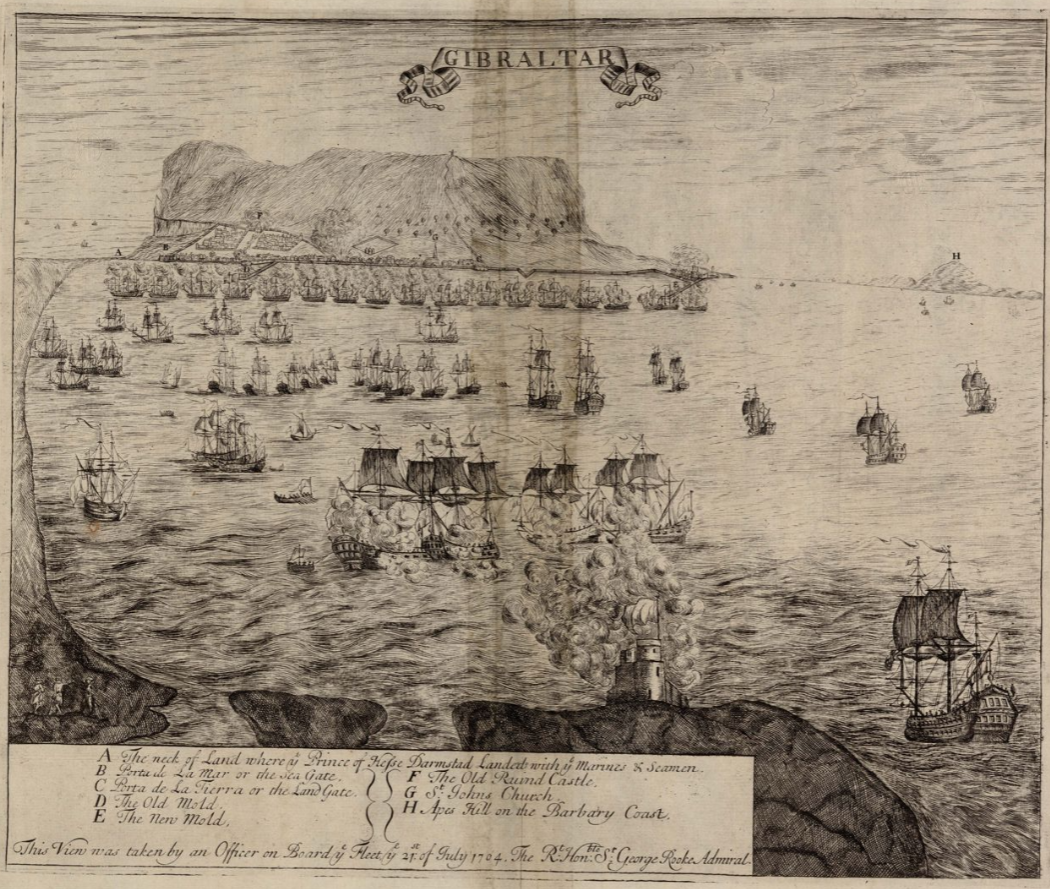 GIBRALTAR
A B F G C E H
A The neck of Land where yͤ Prince of Hesse Darmstad Landed with yͤ Marines & Seamen.
B Porta de La Mar or the Sea Gate.
C Porta de La Tierra or the Land Gate.
D The Old Mold.
E The New Mold.
F The Old Ruind Castle.
G Sᵗ Johns Church.
H Apes Hill on the Barbary Coast.
This View was taken by an Officer on Board yͤ Fleet yͤ 21ˢᵗ of July 1704. The Rᵗ Honᵇˡᵉ Sʳ George Rooke Admiral.